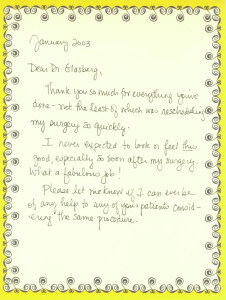 January 2003
Dear Dr. Glasberg,
Thank you so much for everything you've
done - not the least of which was rescheduling
my surgery so quickly.
I never expected to look or feel this
good, especially so soon after my surgery.
What a fabulous job!
Please let me know if I can ever be
of any help to any of your patients consid-
ering the same procedure.